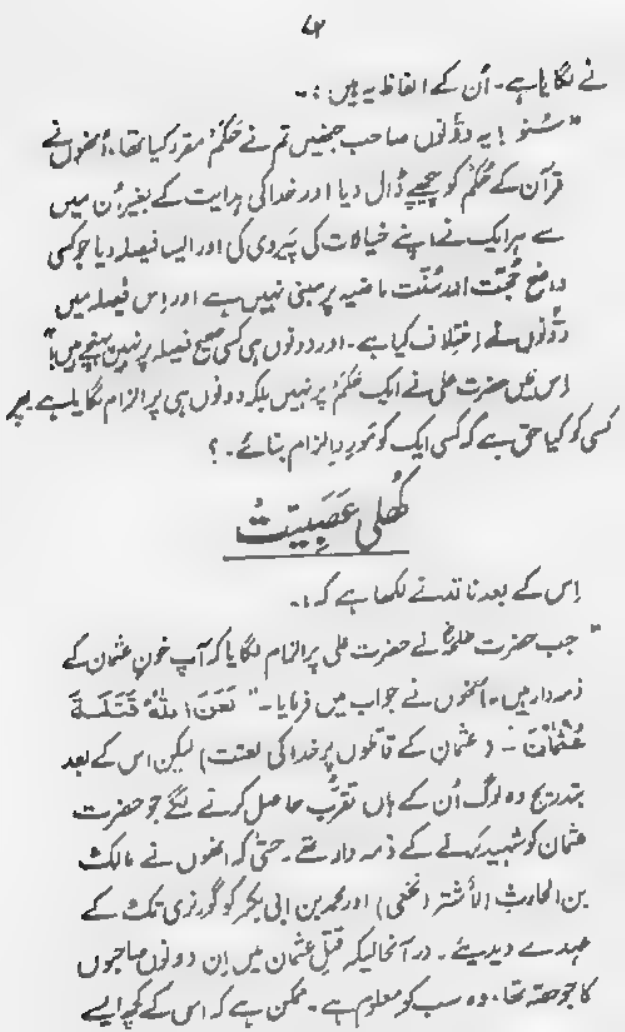 نے لگایا ہے۔ اُن کے الفاظ یہ ہیں :۔
"سُنو ! یہ دونوں صاحب جنھیں تم نے حَکَمْ مقرر کیا تھا، اُنھوں نے
قرآن کے حُکمْ کو پیچھے ڈال دیا اور خدا کی ہدایت کے بغیر اُن میں
سے ہر ایک نے اپنے خیالات کی پَیروی کی اور ایسا فیصلہ دیا جو کسی
واضح حُجّت اور سُنّت ماضیہ پر مبنی نہیں ہے اور اِس فیصلہ میں
دونوں نے اِختِلاف کیا ہے۔ اور دونوں ہی کسی صحیح فیصلہ پر نہیں پہنچے ہیں"
اِس میں حضرت علی نے ایک حَکَمْ پر نہیں بلکہ دونوں ہی پر الزام لگایا ہے پھر
کسی کو کیا حق ہے کہ کسی ایک کو مَوردِ الزام بنائے۔ ؟
کُھلی عَصَبِیَتْ
اِس کے بعد ناقد نے لکھا ہے کہ :۔
"جب حضرت طلحہؓ نے حضرت علی پر الزام لگایا کہ آپ خونِ عثمان کے
ذمہ دار ہیں۔ اُنھوں نے جواب میں فرمایا۔ " لَعَنَ اللّٰهُ قَتَلَةَ
عُثْمَانَ ۔ (عثمان کے قاتلوں پر خدا کی لعنت) لیکن اس کے بعد
بتدریج وہ لوگ اُن کے ہاں تقرُّب حاصل کرنے لگے جو حضرت
عثمان کو شہید کرنے کے ذمہ دار تھے۔ حتیٰ کہ انھوں نے مالک
بن الحارث الأشتر (نخعی) اور محمد بن ابی بکر کو گورنری تک کے
عہدے دیدیئے۔ درآنحالیکہ قتلِ عثمان میں اِن دونوں صاحبوں
کا جو حصّہ تھا، وہ سب کو معلوم ہے۔ ممکن ہے کہ اس کے کچھ ایسے